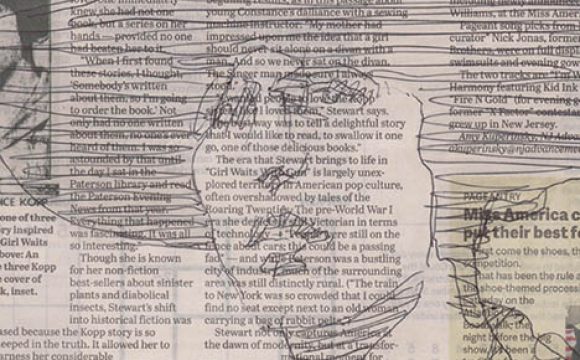 knew she had not one
book, but a series on her
hands — provided no one
had beaten her to it.
"When I first found
these stories, I thought,
'Somebody's written
about them, so I'm going
to order the book.' Not
only had no one written
about them, no one's ever
heard of them. I was so
astounded by that until
the day I sat in the
Paterson library and read
the Paterson Evening
News from that year.
Everything that happened
was fascinating. It was all
so interesting."
Though she is known
for her non-fiction
best-sellers about sinister
plants and diabolical
insects, Stewart's shift
into historical fiction was
NCE KOPP
one of three
ry inspired
Girl Waits
bove: An
e three Kopp
e cover of
k, inset.
ased because the Kopp story is so
eeped in the truth. It allowed her to
arness her considerable
young Constance's dalliance with a sewing
instructor: "My mother had
impressed upon me the idea that a girl
should never sit alone on a divan with a
man. And so we never sat on the divan.
The Singer man made sure I always
stood."
people to love the Kopp
I loved them," Stewart says.
way was to tell a delightful story
that I would like to read, to swallow it one
go, one of those delicious books."
The era that Stewart brings to life in
"Girl Waits With Gun" is largely unex-
plored territory in American pop culture,
often overshadowed by tales of the
Roaring Twenties. The pre-World War I
era she
Victorian in terms
of technology
were still on the
about cars; this could be a passing
fad — and while Paterson was a bustling
city of industry, much of the surrounding
area was still distinctly rural. ("The train
to New York was so crowded that I could
find no seat except next to an old woman
carrying a bag of rabbit pelts.")
Stewart not only captures America at
the dawn of modernity, but at a transfor-
mational moment for
Williams, at the Miss Amer
Pageant song picks from
curator" Nick Jonas, former
Brothers, were on full displ
swimsuits and evening gow
The two tracks are "I'm
Harmony featuring Kid Ink
"Fire N Gold" (for evening g
former "X Factor" contesta
grew up in New Jersey.
Amy Kuperinsky, NJ Adva
akuperinsky@njadvancem
PAGEANTRY
Miss America c
put their best f
First come the shoes, th
competition.
That has been the rule a
the shoe-themed process
Saturday on the
Boardwalk, the
night before the big
show. It's been a